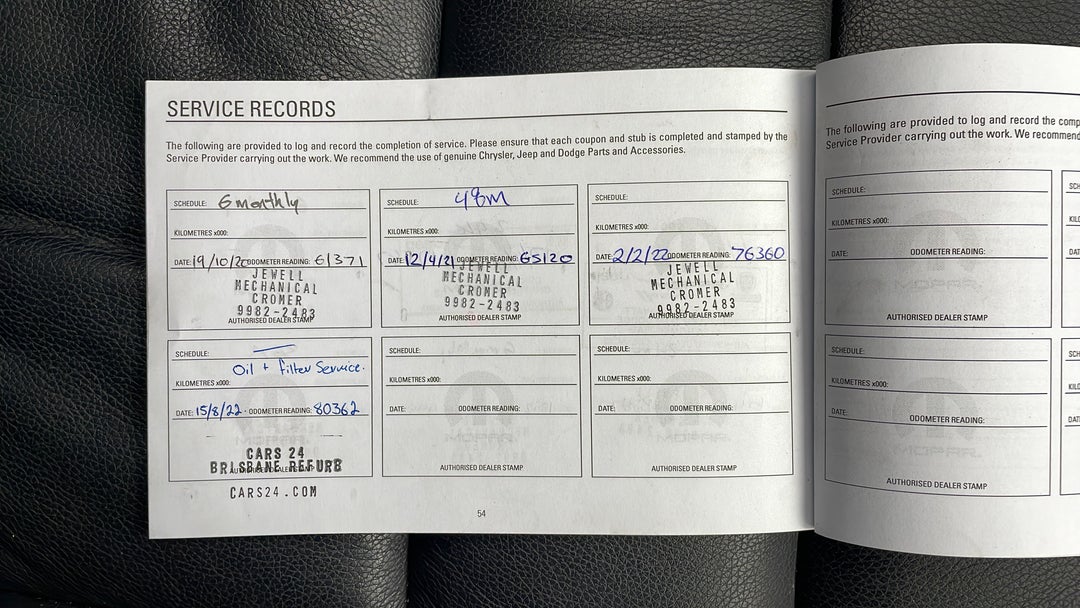 SERVICE RECORDS
The following are provided to log and record the completion of service. Please ensure that each coupon and stub is completed and stamped by the
Service Provider carrying out the work. We recommend the use of genuine Chrysler, Jeep and Dodge Parts and Accessories.
SCHEDULE: 6 monthly
KILOMETRES x000:
DATE: 19/10/20 ODOMETER READING: 61371
JEWELL
MECHANICAL
CROMER
9982-2483
AUTHORISED DEALER STAMP
SCHEDULE: 48m
KILOMETRES x000:
DATE: 12/4/21 ODOMETER READING: 65120
JEWELL
MECHANICAL
CROMER
9982-2483
AUTHORISED DEALER STAMP
SCHEDULE:
KILOMETRES x000:
DATE: 2/2/22 ODOMETER READING: 76360
JEWELL
MECHANICAL
CROMER
9982-2483
AUTHORISED DEALER STAMP
SCHEDULE:
Oil + filter Service.
KILOMETRES x000:
DATE: 15/8/22 ODOMETER READING: 80362
CARS 24
BRISBANE REFURB
AUTHORISED DEALER STAMP
CARS24.COM
SCHEDULE:
KILOMETRES x000:
DATE: ODOMETER READING:
AUTHORISED DEALER STAMP
SCHEDULE:
KILOMETRES x000:
DATE: ODOMETER READING:
AUTHORISED DEALER STAMP
54
The following are provided to log and record the comp
Service Provider carrying out the work. We recommend
SCHEDULE:
KILOMETRES x000:
DATE: ODOMETER READING:
AUTHORISED DEALER STAMP
SCH
KILO
DAT
SCHEDULE:
KILOMETRES x000:
DATE: ODOMETER READING:
AUTHORISED DEALER STAMP
SCH
KIL
DAT